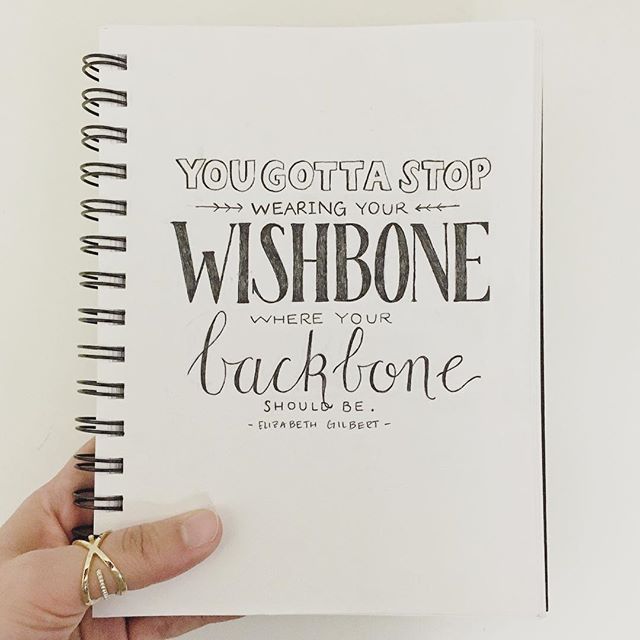 YOU GOTTA STOP
WEARING YOUR
WISHBONE
WHERE YOUR
backbone
SHOULD BE.
- ELIZABETH GILBERT -